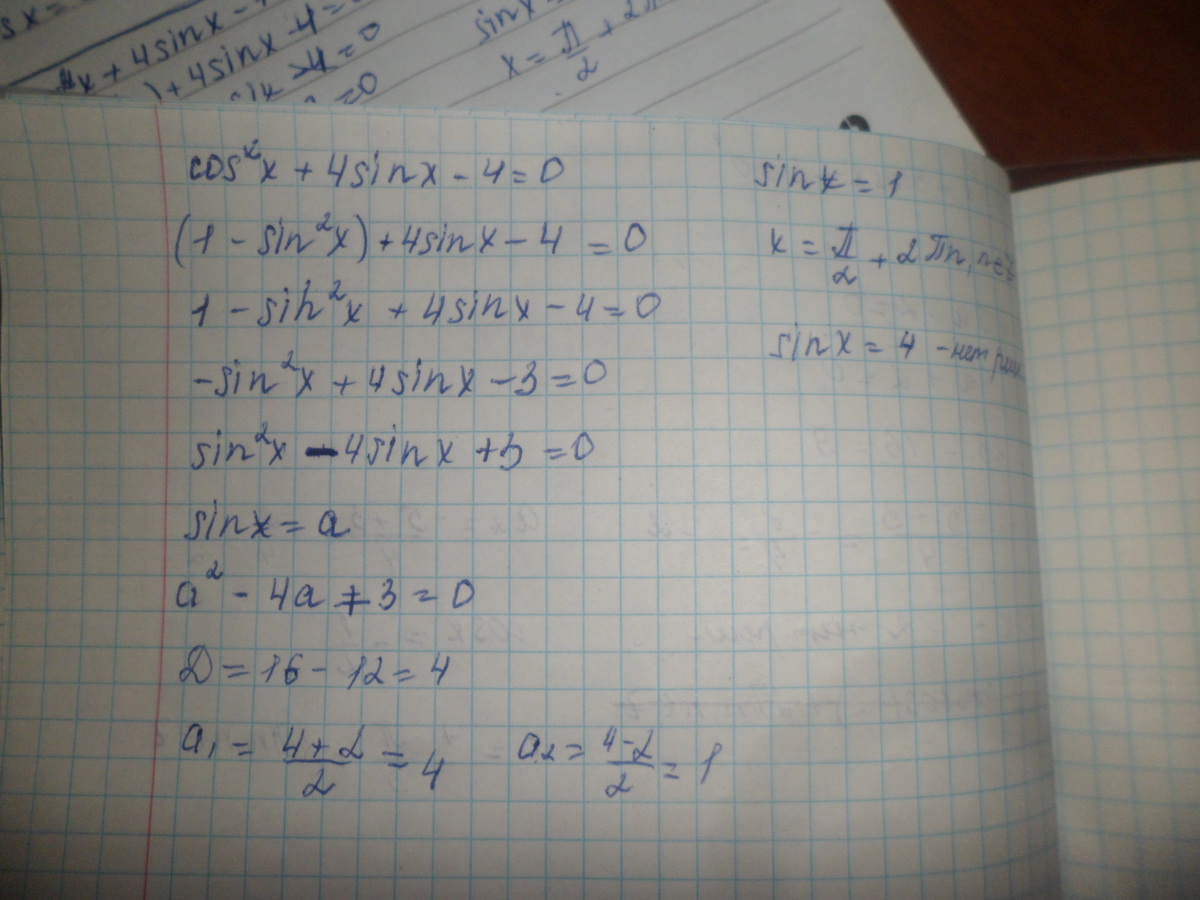 sinx
x = π/2 + 2π
4x + 4sinx -
) + 4sinx - 4 =
4 = 0
= 0
cos²x + 4sinx - 4 = 0
(1 - sin²x) + 4sinx - 4 = 0
1 - sin²x + 4sinx - 4 = 0
-sin²x + 4sinx - 3 = 0
sin²x - 4sinx + 3 = 0
sinx = a
a² - 4a + 3 = 0
D = 16 - 12 = 4
a₁ = (4+2)/2 = 4 a₂ = (4-2)/2 = 1
sinx = 1
x = π/2 + 2πn, n∈Z
sinx = 4 - нет реш